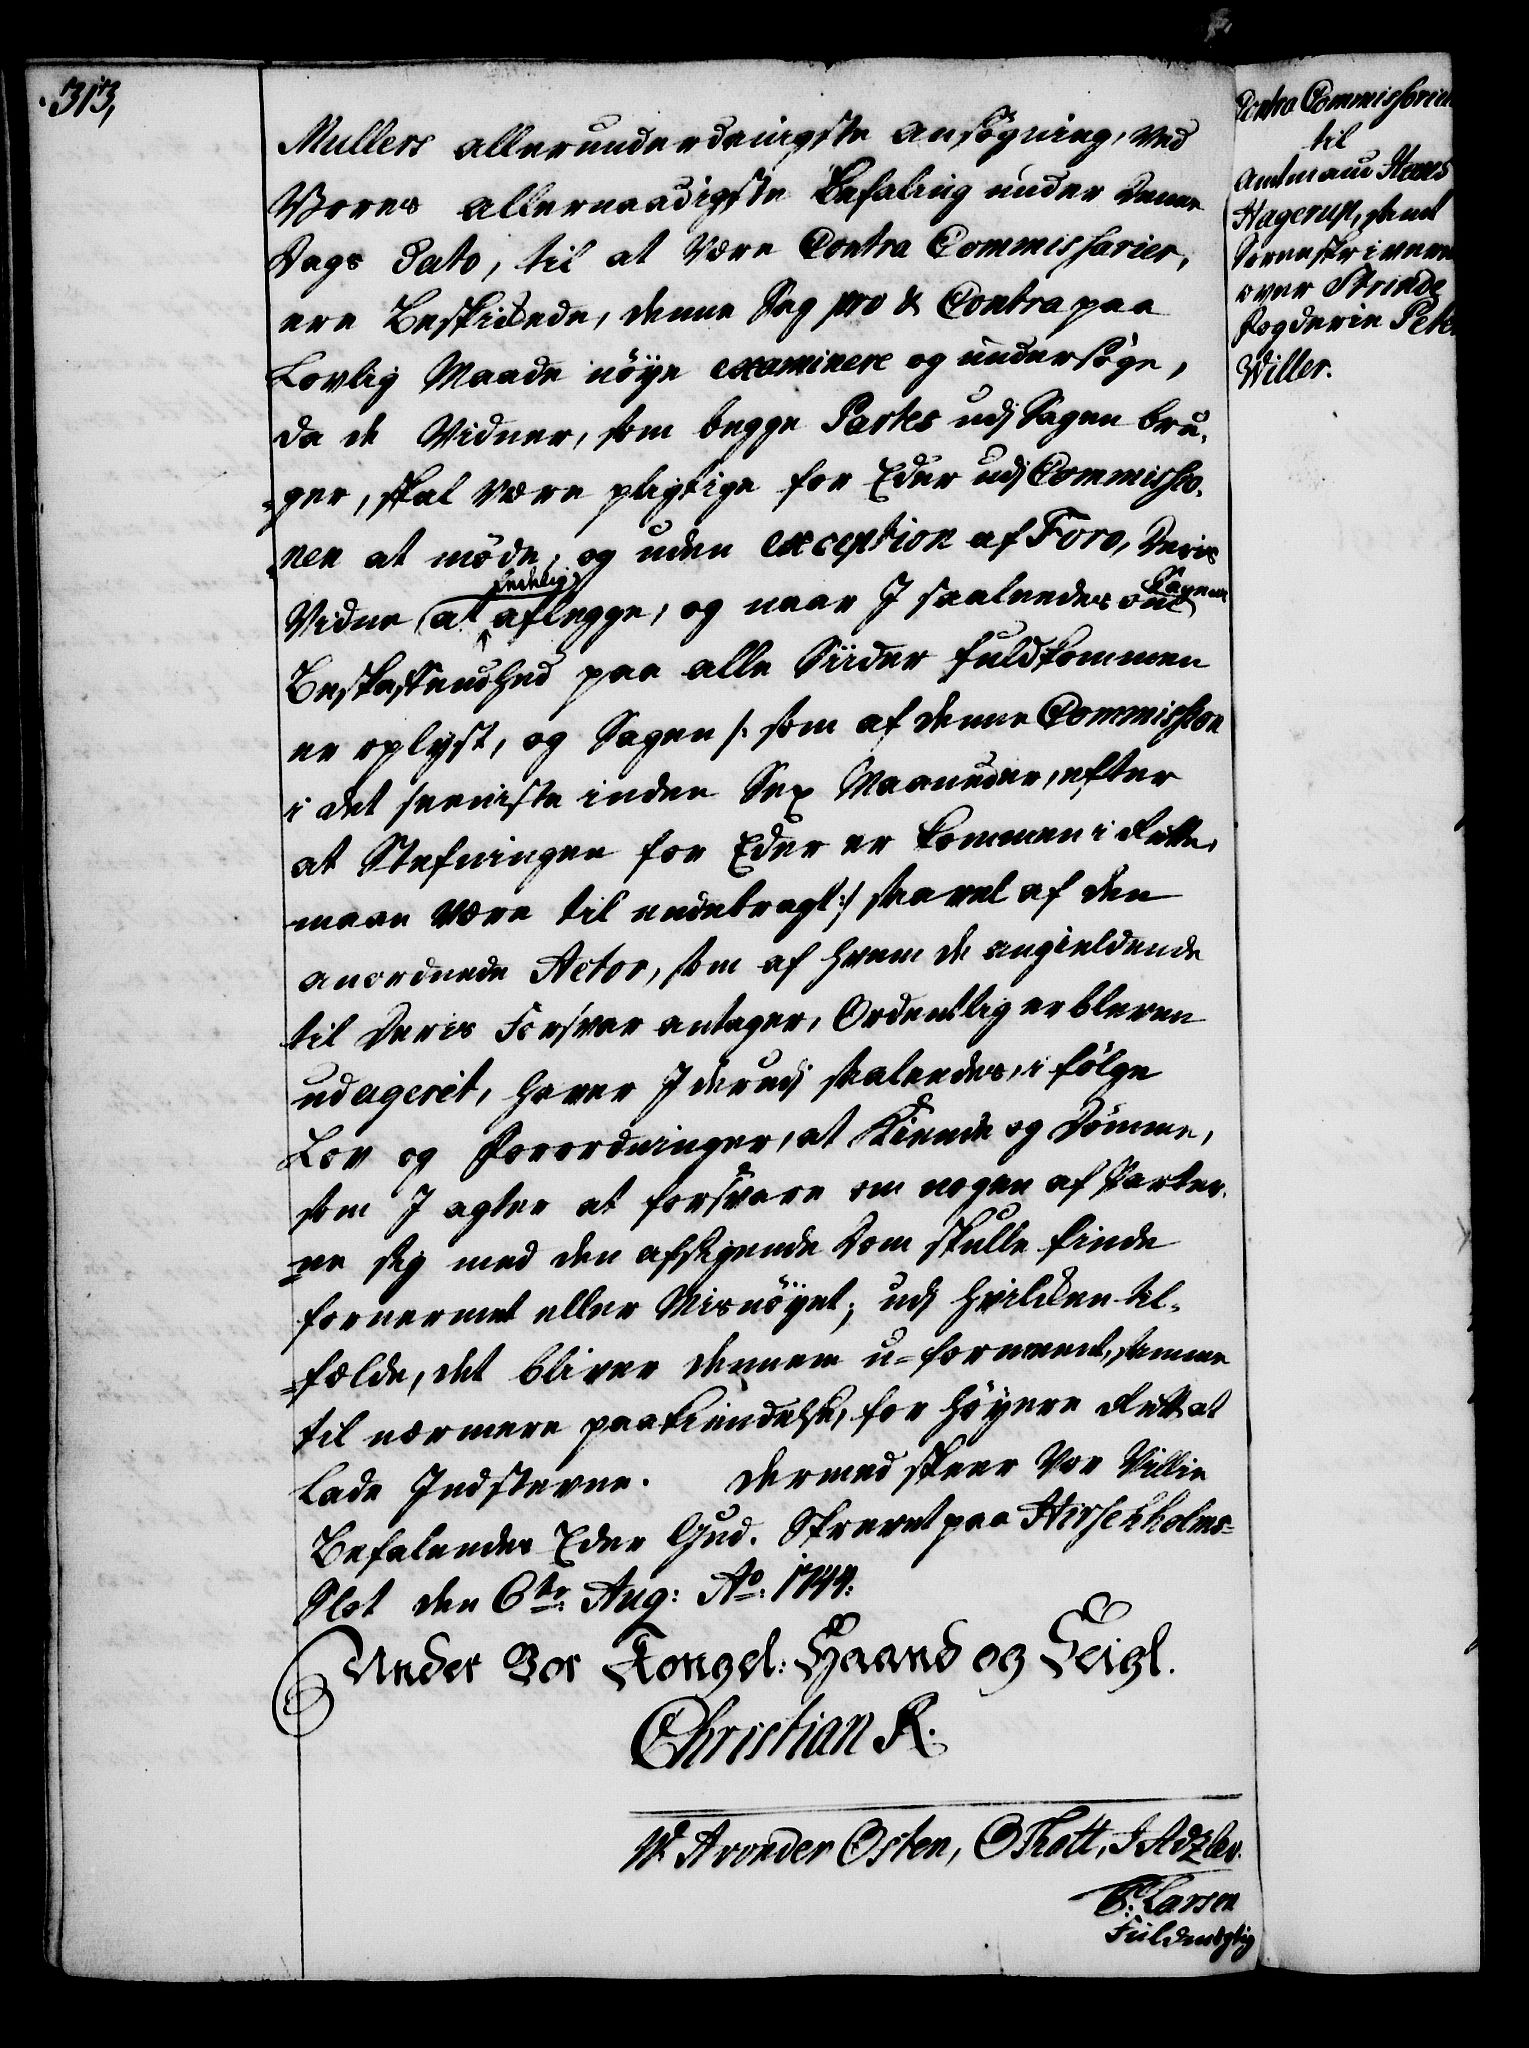 313,
Mullers allerunderdanigste Ansøgning, ved
Vores allernaadigste Befaling under Denne
Dags Dato, til at være Contra Commissarier,
ere Beskickede, denne Sag pro & Contra paa
Lovlig Maade nøye examinere og undersøge,
da de Vidner, som begge Partes udj Sagen bru-
-ger, skal være pligtige for Eder udj Commissio-
-nen at møde, og uden exception af Foro, Deris
Vidne at edelig aflegge, og naar I saaledes om Sagens
Beskaffenhed paa alle Siider fuldkommen
er oplyst, og Sagen /: som af denne Commission
i det seeniste inden Sex Maaneder, efter
at Stefningen for Eder er kommen i Rette,
maae være til endebragt :/ saavel af den
anordnede Actor, som af hvem de angieldende
til Deris Forsvar antager, Ordentlig er bleven
udageret, haver I derudj saaledes, i følge
Lov og Forordninger, at Kiende og Dømme,
som I agter at forsvare om nogen af Parter-
-ne sig med den afsigende Dom skulle finde
fornermet eller Misnøyet; udj hvilken til-
-fælde, det bliver dennem u-formeent, samme
til nærmere paakiendelse, for høyere Rett at
lade Indstevne. Dermed skeer Vor Villie
Befalendes Eder Gud. Skrevet paa Hirschholms-
Slot den 6te Aug: Ao: 1744.
Under Vor Kongel: Haand og Seigl.
Christian R.
W. A von der Osten, O Thott, J Adzler.
C: Larsen
Fuldmægtig
Contra Commissorium
til
Amtmand Hans
Hagerup, samt
Sorenskriveren
over Strinde
Fogderie Peter
Willer.